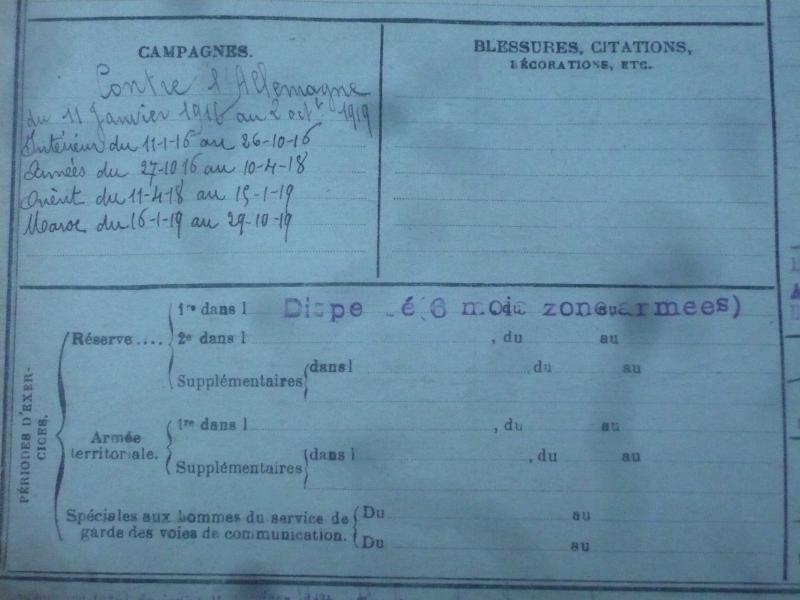 CAMPAGNES.
Contre l'Allemagne
du 11 Janvier 1916 au 2 oct. 1919
Intérieur du 11-1-16 au 26-10-16
Armées du 27-10 16 au 10-4-18
Orient du 11-4-18 au 15-1-19
Maroc du 16-1-19 au 29-10-19
BLESSURES, CITATIONS,
DÉCORATIONS, ETC.
PÉRIODES D'EXER-
CICES.
Réserve....
1re dans l Dispe é (6 mois zone armees) du au
2e dans l , du au
Supplémentaires dans l , du au
Armée
territoriale.
1re dans l , du au
Supplémentaires dans l , du au
Spéciales aux hommes du service de
garde des voies de communication.
Du au
Du au